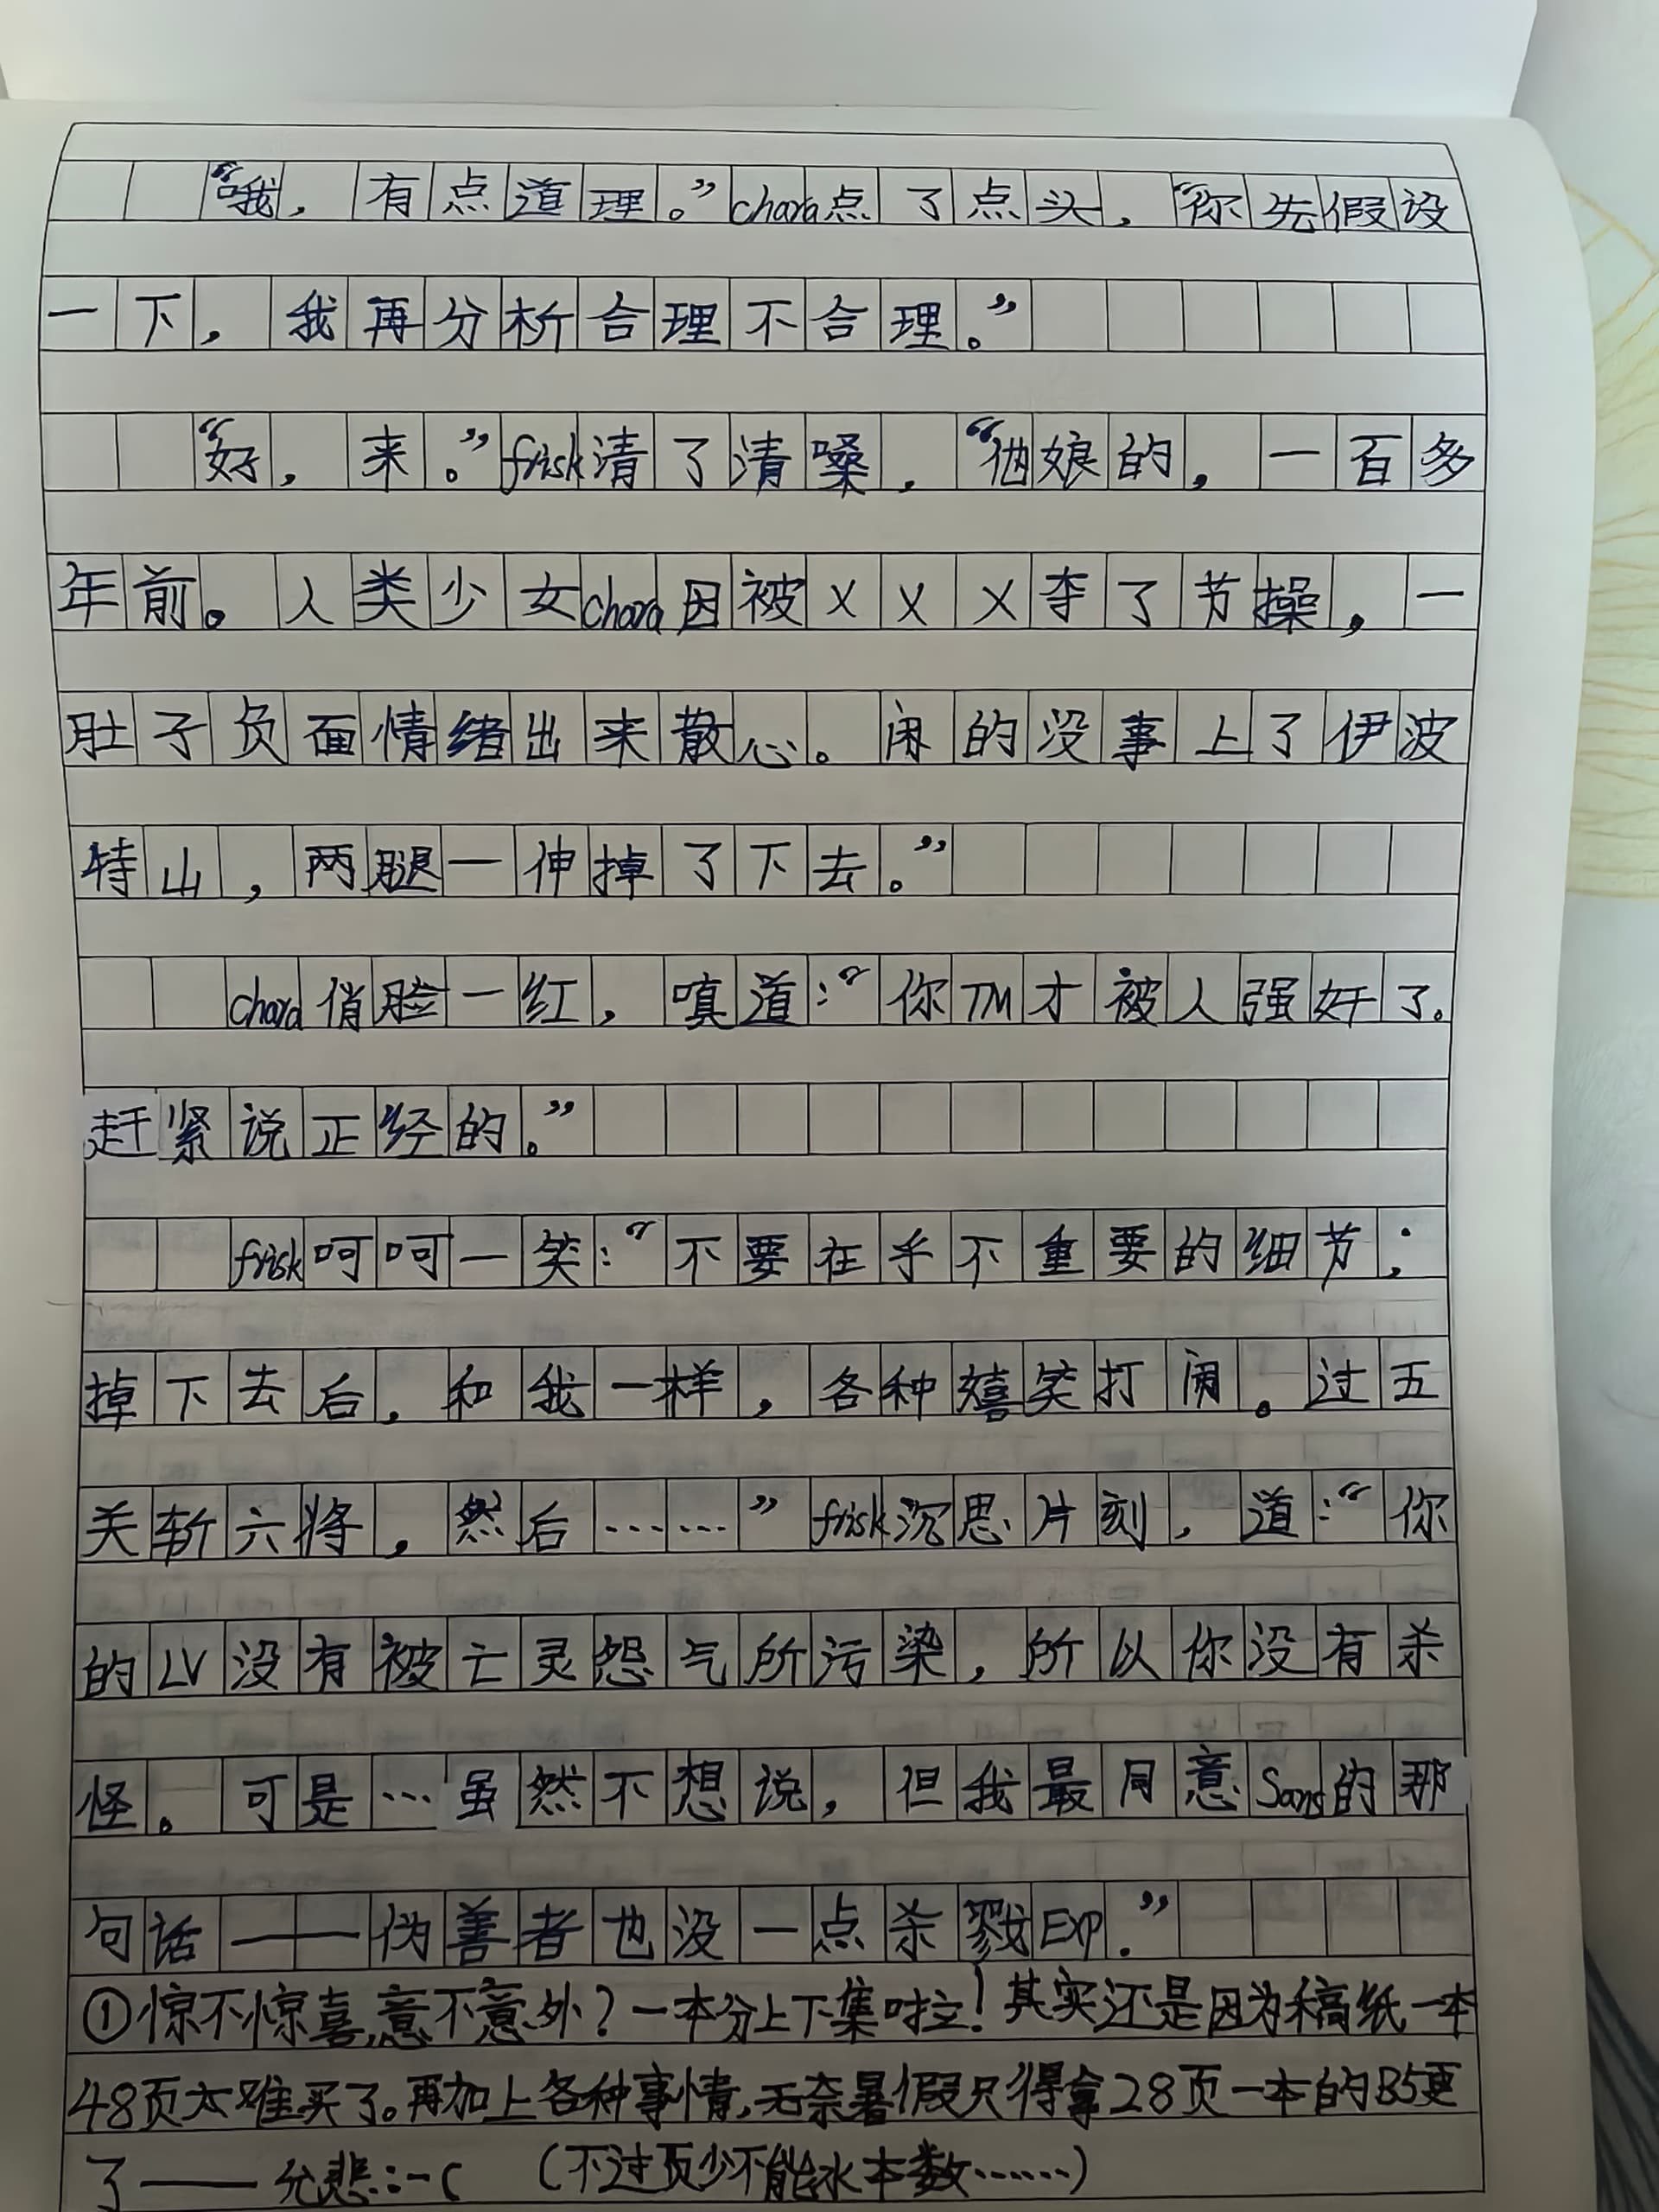 “哦，有点道理。”chara点了点头，“你先假设
一下，我再分析合理不合理。”
“好，来。”frisk清了清嗓，“他娘的，一百多
年前。人类少女chara因被XXX夺了节操，一
肚子负面情绪出来散心。闲的没事上了伊波
特山，两腿一伸掉了下去。”
chara俏脸一红，嗔道：“你TM才被人强奸了。
赶紧说正经的。”
frisk呵呵一笑：“不要在乎不重要的细节；
掉下去后，和我一样，各种嬉笑打闹。过五
关斩六将，然后……”frisk沉思片刻，道：“你
的LV没有被亡灵怨气所污染，所以你没有杀
怪。可是…虽然不想说，但我最同意Sans的那
句话——伪善者也没一点杀戮EXP.”
①惊不惊喜，意不意外？一本分上下集啦！其实还是因为稿纸一本
48页太难买了。再加上各种事情，无奈暑假只得拿28页一本的B5更
了——允悲:-( （不过页少不能水本数……）